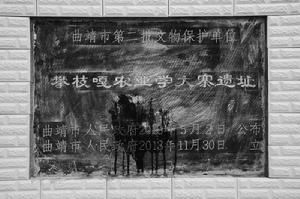 曲靖市第二批文物保护单位
攀枝嘎农业学大寨遗址
曲靖市人民政府 年5月2日 公布
曲靖市人民政府2013年11月30日 立